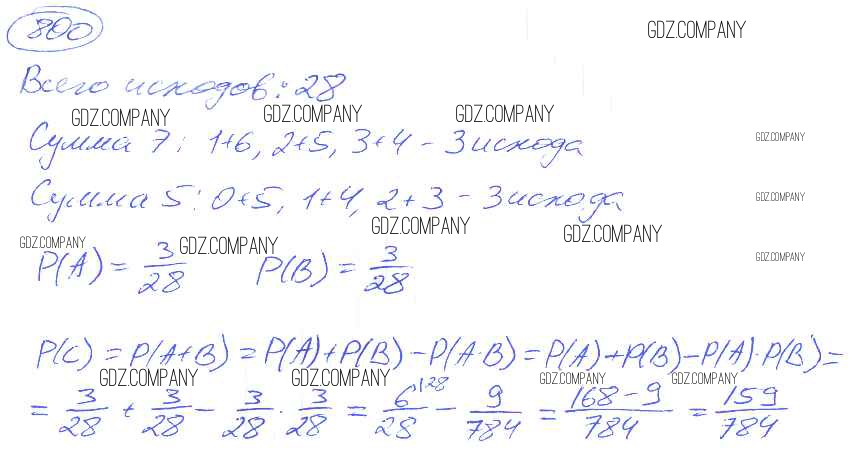 800
GDZ.COMPANY
Всего исходов: 28
GDZ.COMPANY GDZ.COMPANY GDZ.COMPANY
Сумма 7: 1+6, 2+5, 3+4 - 3 исхода
GDZ.COMPANY
Сумма 5: 0+5, 1+4, 2+3 - 3 исхода
GDZ.COMPANY
GDZ.COMPANY GDZ.COMPANY GDZ.COMPANY GDZ.COMPANY
P(A) = 3/28 P(B) = 3/28
GDZ.COMPANY
P(C) = P(A+B) = P(A)+P(B)-P(A·B) = P(A)+P(B)-P(A)·P(B) =
GDZ.COMPANY GDZ.COMPANY GDZ.COMPANY GDZ.COMPANY
= 3/28 + 3/28 - 3/28 · 3/28 = 6\28/28 - 9/784 = 168-9/784 = 159/784